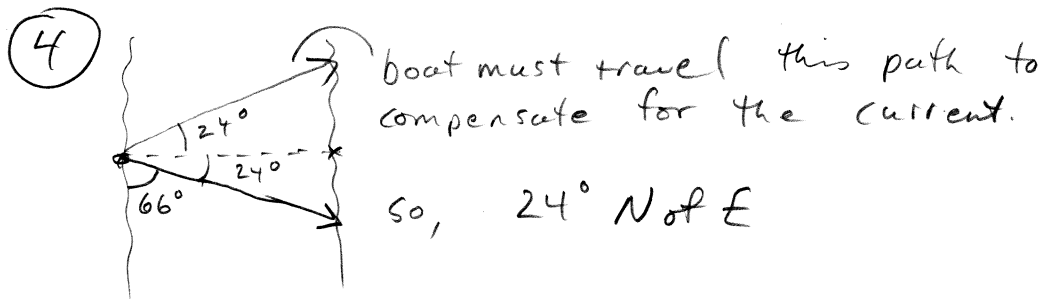 4
boat must travel this path to
compensate for the current.
24°
24°
66°
so, 24° N of E